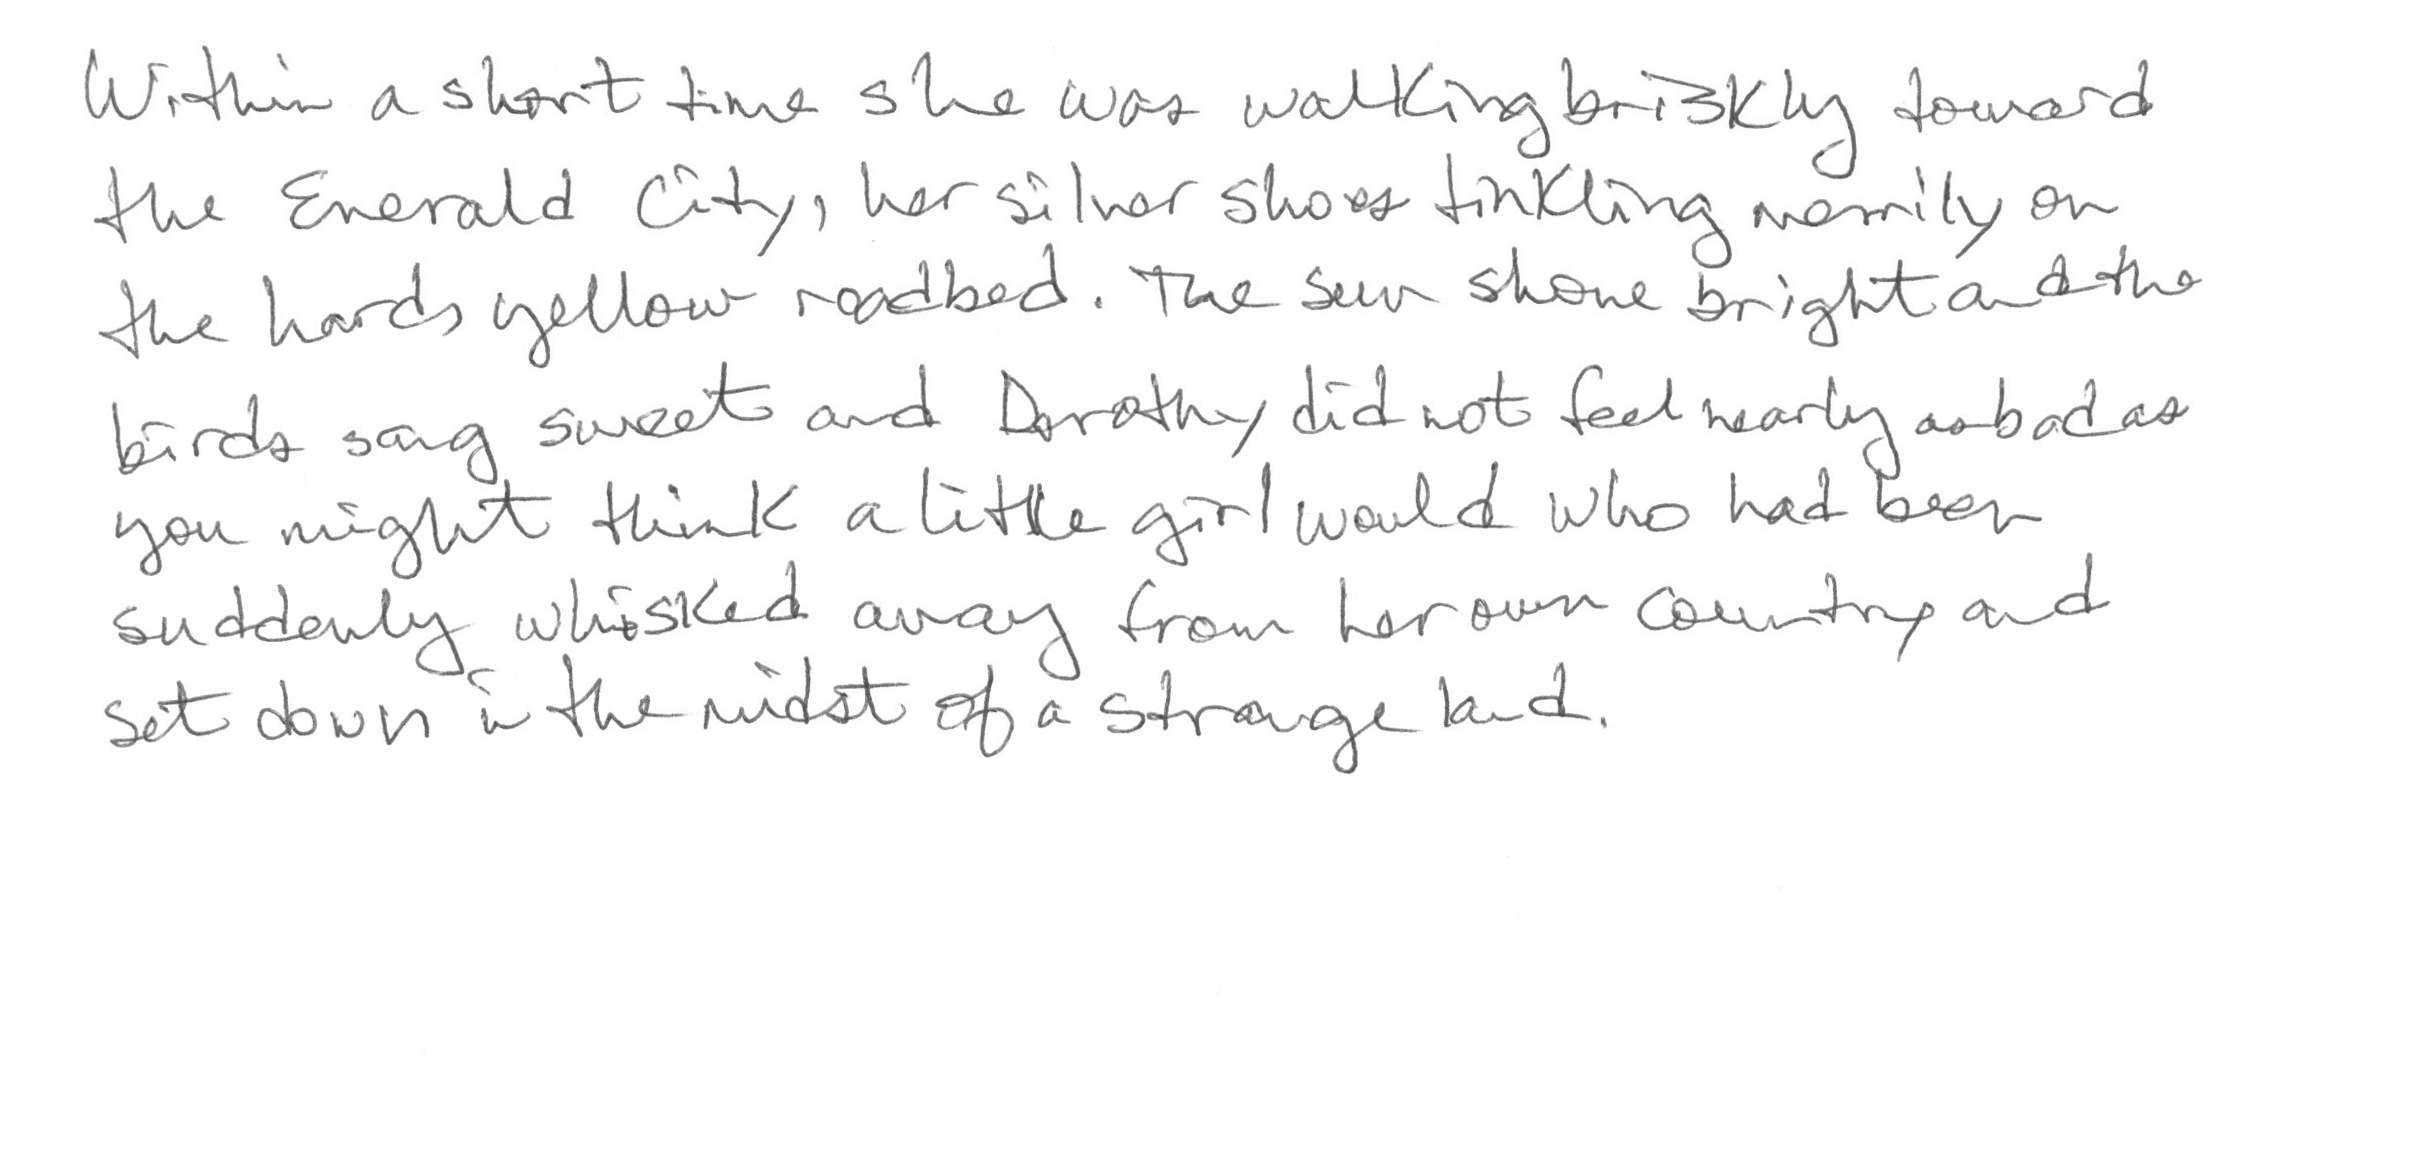 Within a short time she was walking briskly toward
the Emerald City, her silver shoes tinkling merrily on
the hard, yellow roadbed. The sun shone bright and the
birds sang sweet and Dorothy did not feel nearly as bad as
you might think a little girl would who had been
suddenly whisked away from her own country and
set down in the midst of a strange land.